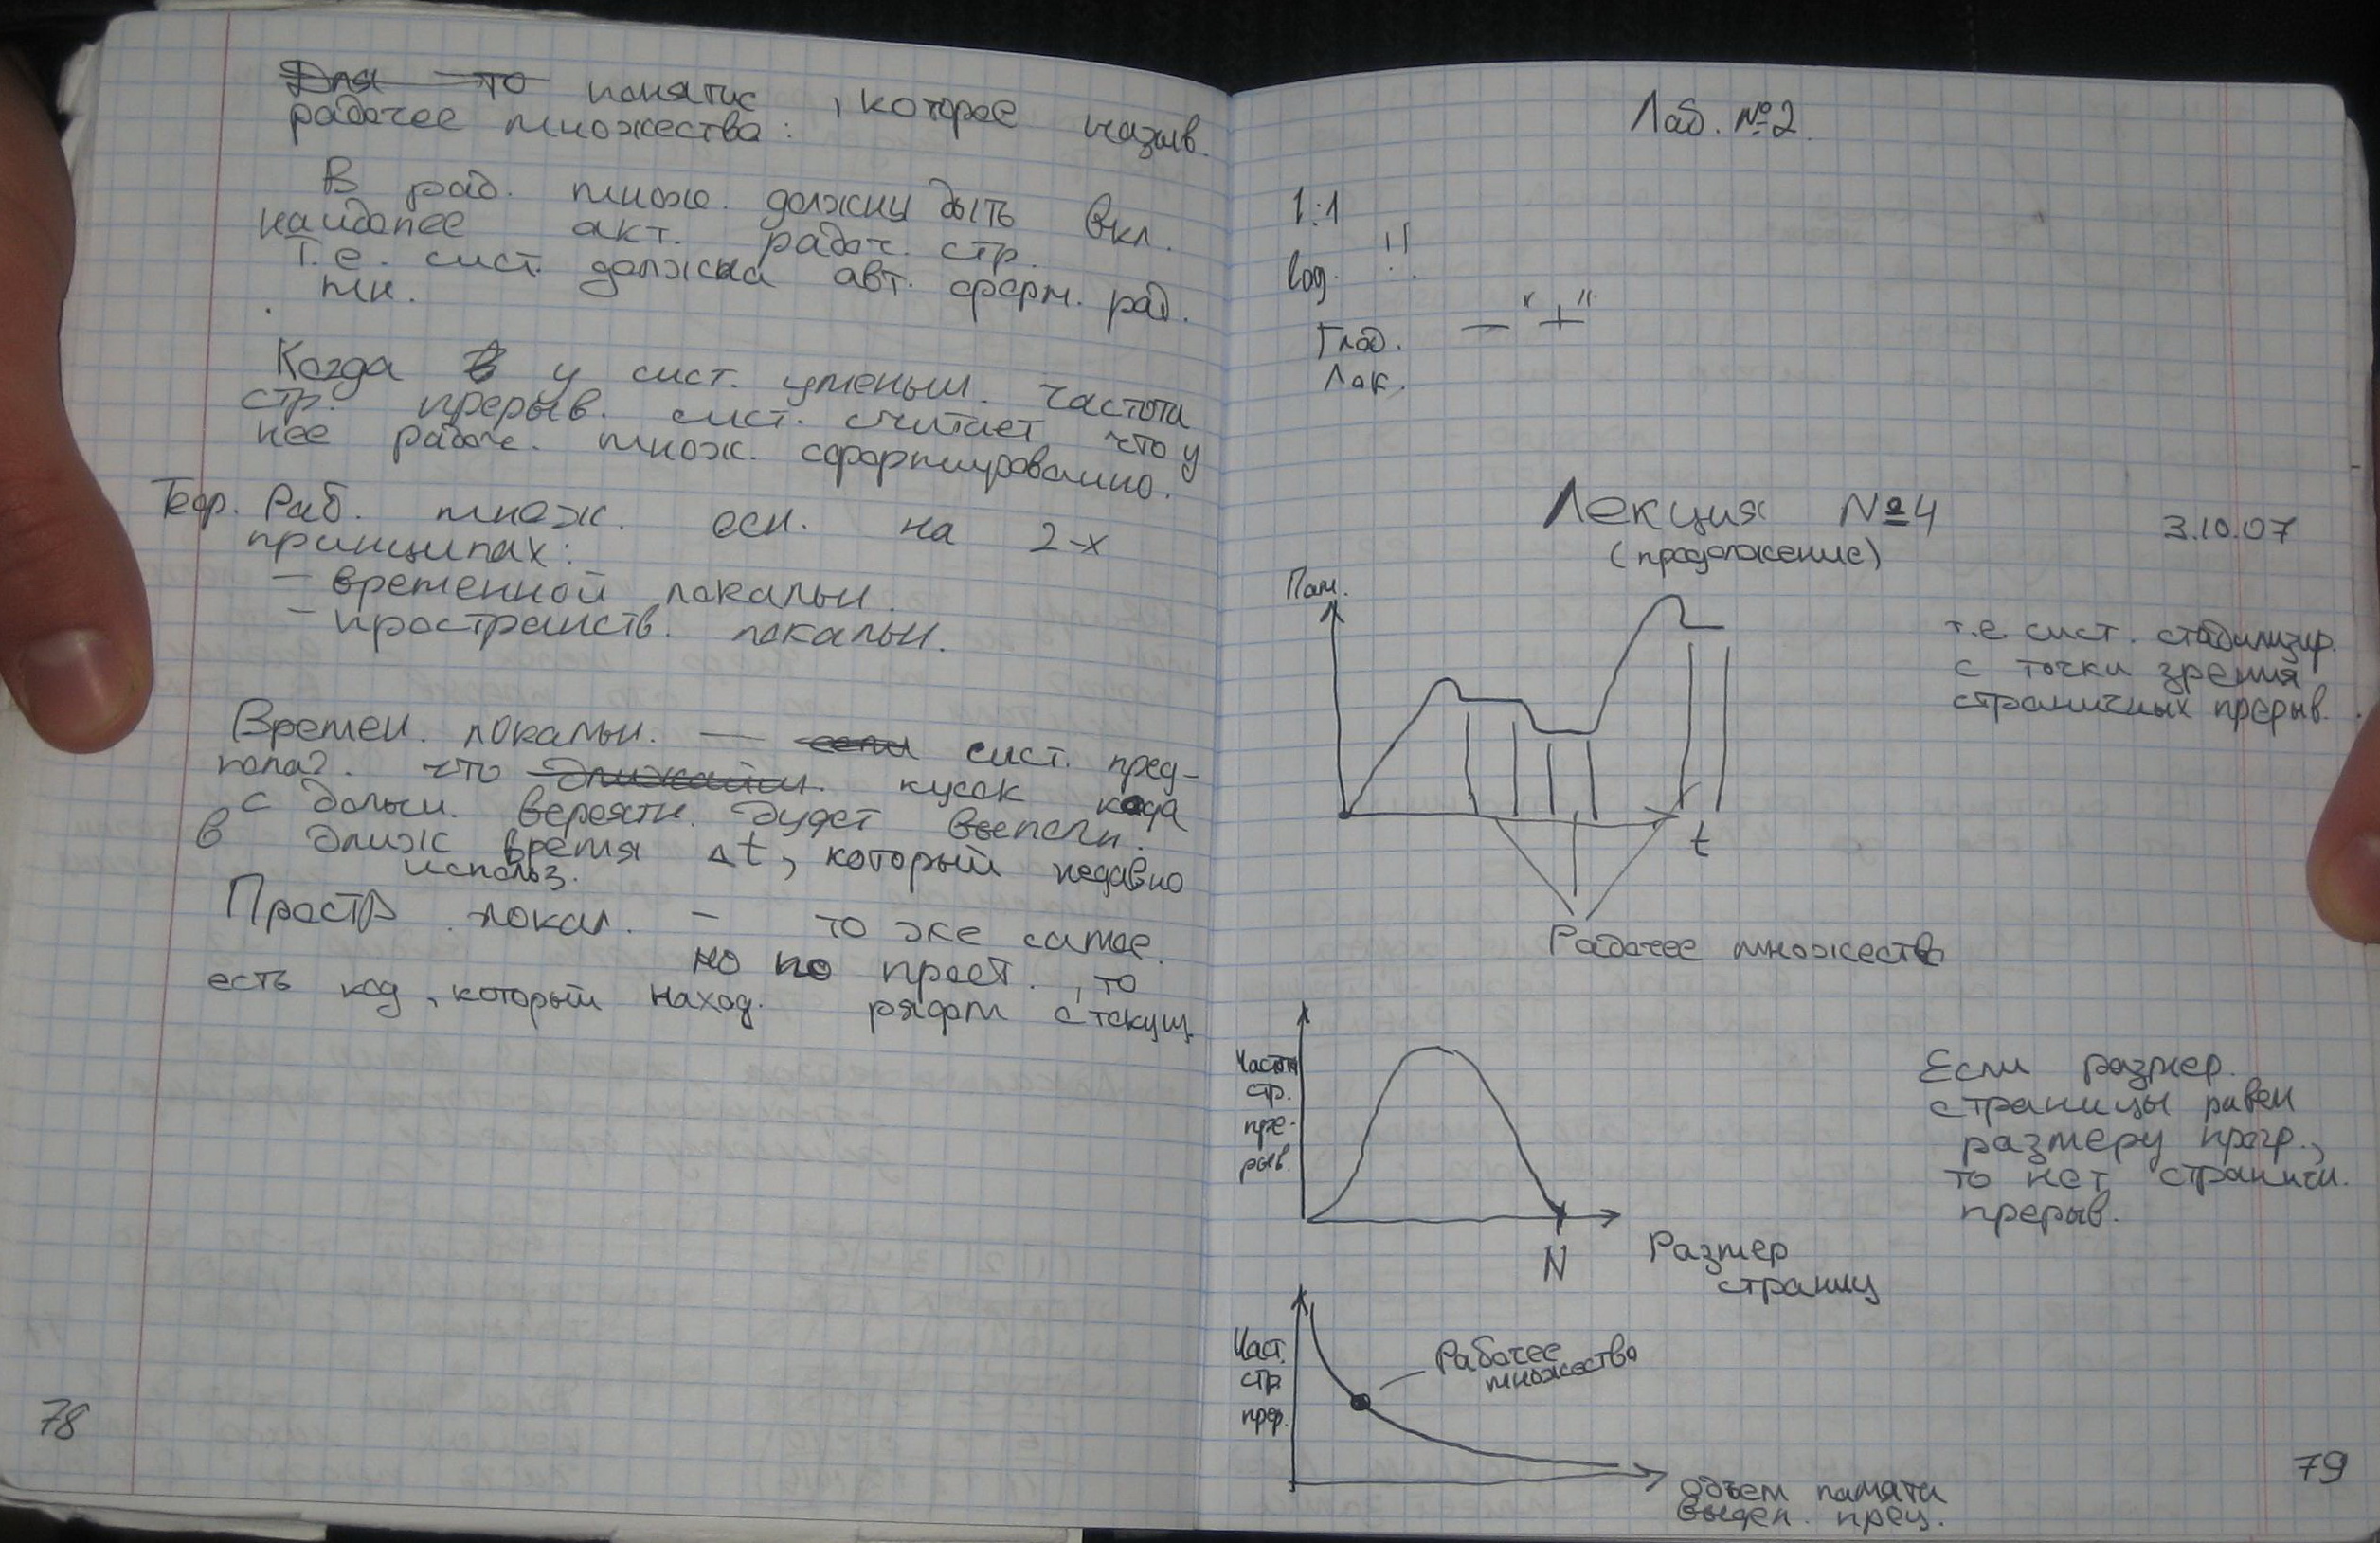 Для то понятие , которое назыв.
рабочее множество:
В раб. множ. должны быть вкл.
наиболее акт. рабоч. стр.
Т.е. сист. должна авт. форм. раб.
мн.
Когда у сист. уменьш. частота
стр. прерыв. сист. считает что у
нее рабоч. множ. сформированно.
Теор. Раб. множ. осн. на 2-х
принципах:
- временной локальн.
- пространств. локальн.
Времен. локальн. — если сист. пред-
полаг. что ближайш. кусок кода
с больш. вероятн. будет выполн.
в ближ время Δt, который недавно
использ.
Простр. локал. - то же самое.
но по прост. , то
есть код, который наход. рядом с текущ.
78
Лаб. №2.
1:1
Log. "
Глоб. — "+"
Лок.
Лекция №4
(продолжение)
3.10.07
Пам.
t
Рабочее множество
т.е. сист. стабилизир.
с точки зрения
страничных прерыв.
Частота
стр.
пре-
рыв.
N
Размер
страниц
Если размер.
страницы равен
размеру прогр.,
то нет страничн.
прерыв.
Част.
стр
прер.
Рабочее
множество
Объем памяти
выдел. проц.
79